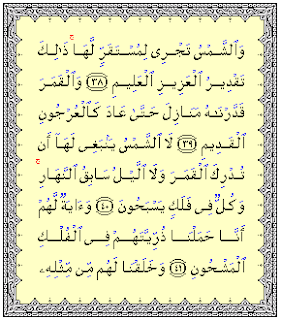 وَٱلشَّمْسُ تَجْرِى لِمُسْتَقَرٍّ لَّهَا ۚ ذَٰلِكَ
تَقْدِيرُ ٱلْعَزِيزِ ٱلْعَلِيمِ ﴿٣٨﴾ وَٱلْقَمَرَ
قَدَّرْنَـٰهُ مَنَازِلَ حَتَّىٰ عَادَ كَٱلْعُرْجُونِ
ٱلْقَدِيمِ ﴿٣٩﴾ لَا ٱلشَّمْسُ يَنۢبَغِى لَهَآ أَن
تُدْرِكَ ٱلْقَمَرَ وَلَا ٱلَّيْلُ سَابِقُ ٱلنَّهَارِ ۚ
وَكُلٌّ فِى فَلَكٍ يَسْبَحُونَ ﴿٤٠﴾ وَءَايَةٌ لَّهُمْ
أَنَّا حَمَلْنَا ذُرِّيَّتَهُمْ فِى ٱلْفُلْكِ
ٱلْمَشْحُونِ ﴿٤١﴾ وَخَلَقْنَا لَهُم مِّن مِّثْلِهِۦ